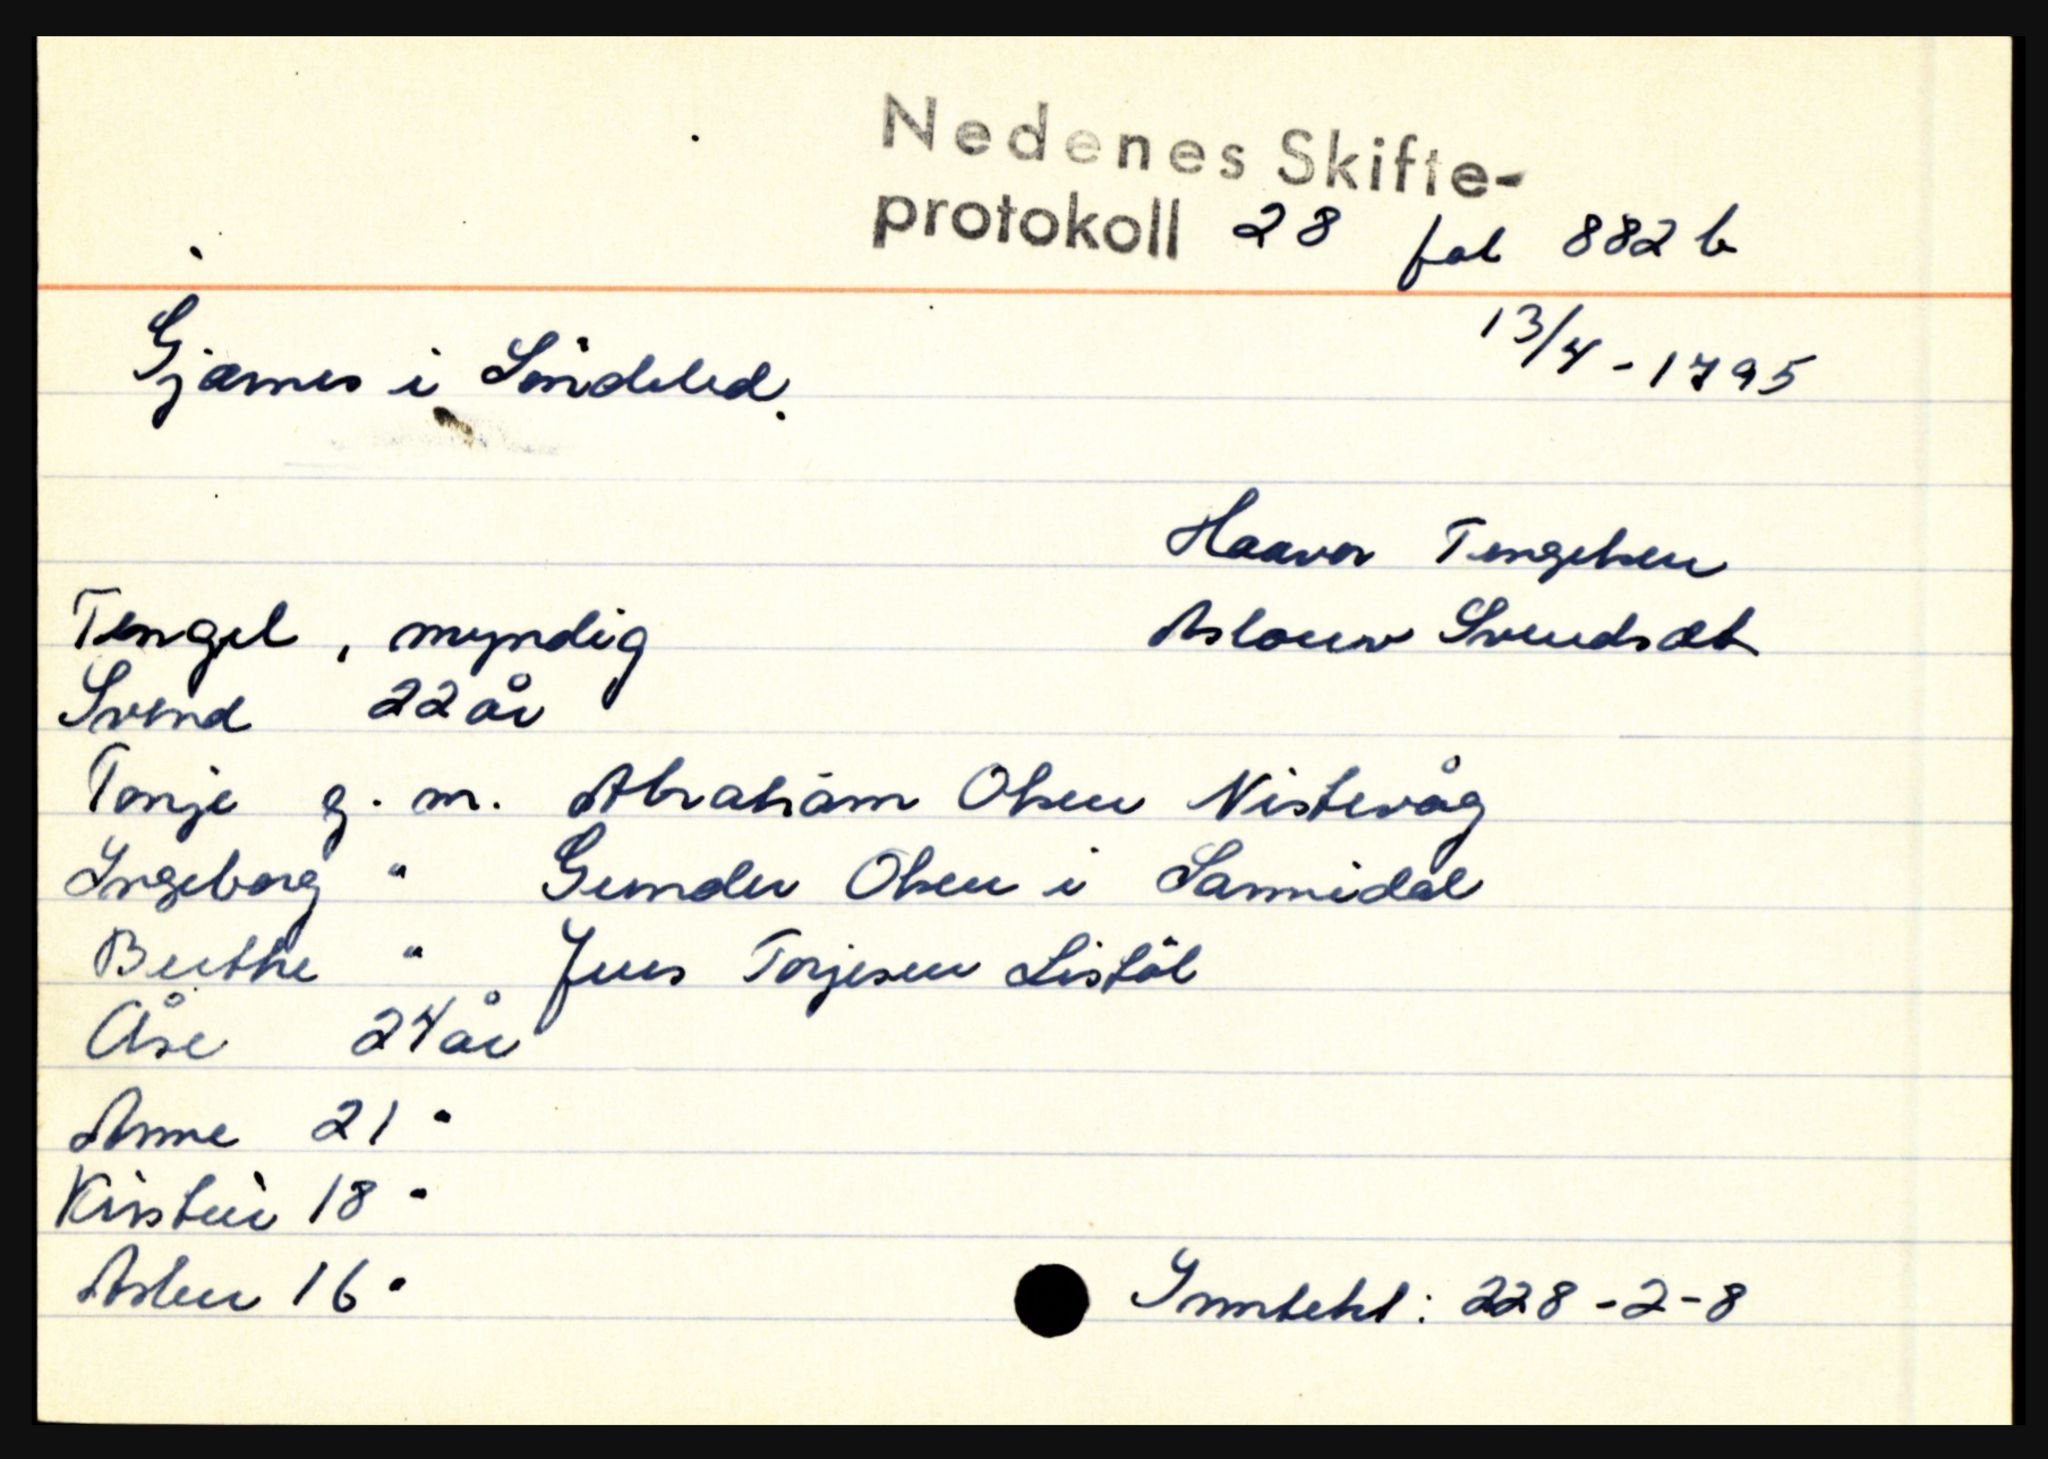 Nedenes Skifte-
protokoll 28 fol 882 b
13/4 - 1795
Gjærnes i Söndeled.
Haavor Tengelsen
Aslouv Svendsdt
Tengel, myndig
Svend 22 år
Tonje g. m. Abraham Olsen Nistevåg
Ingeborg " Gunder Olsen i Sannidal
Berthe " Jens Torjesen Listöl
Åse 24 år
Anne 21 "
Kirstin 18 "
Aslen 16 "
Inntekt: 228 - 2 - 8